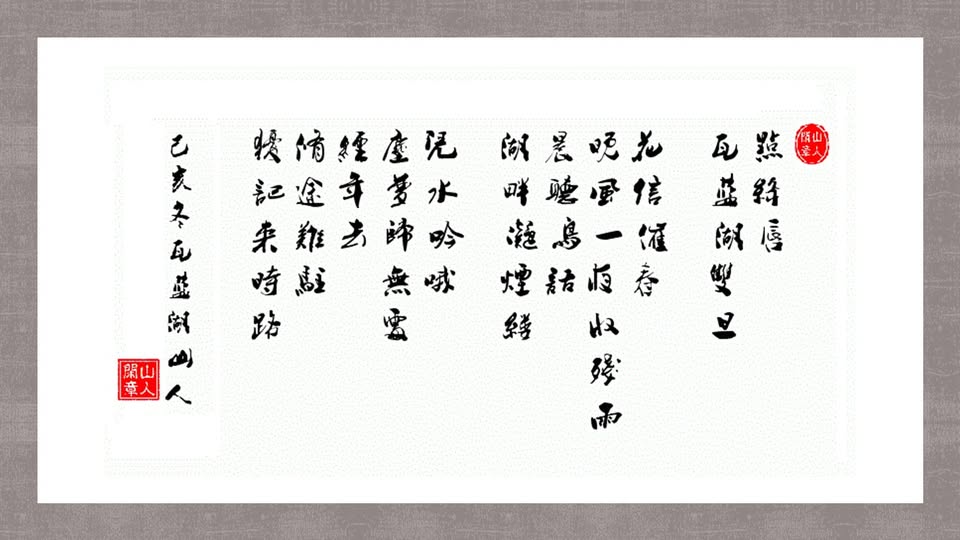 山人閑章
點絳唇
瓦藍湖雙旦
花信催春
晚風一夜收殘雨
晨聽鳥語
湖畔凝煙縷
凭水吟哦
塵夢歸無處
經年去
脩途難駐
記来時路
己亥冬瓦藍湖山人
山人閑章